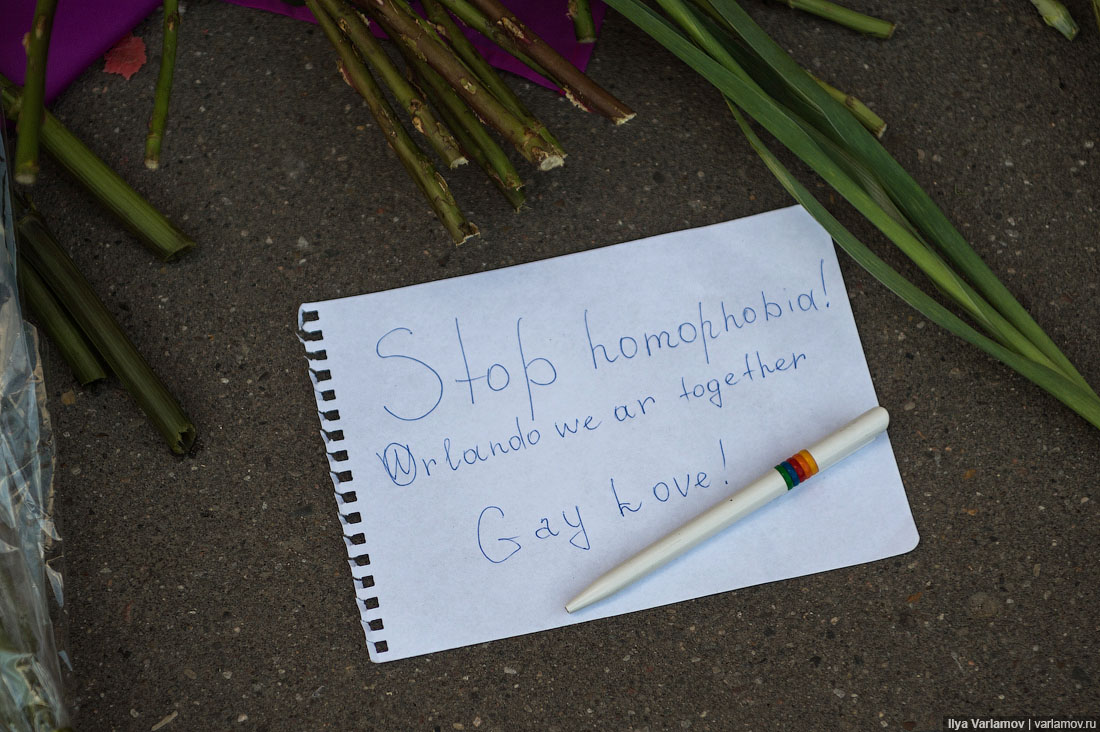 Stop homophobia!
Orlando we ar together
Gay Love!
Ilya Varlamov | varlamov.ru